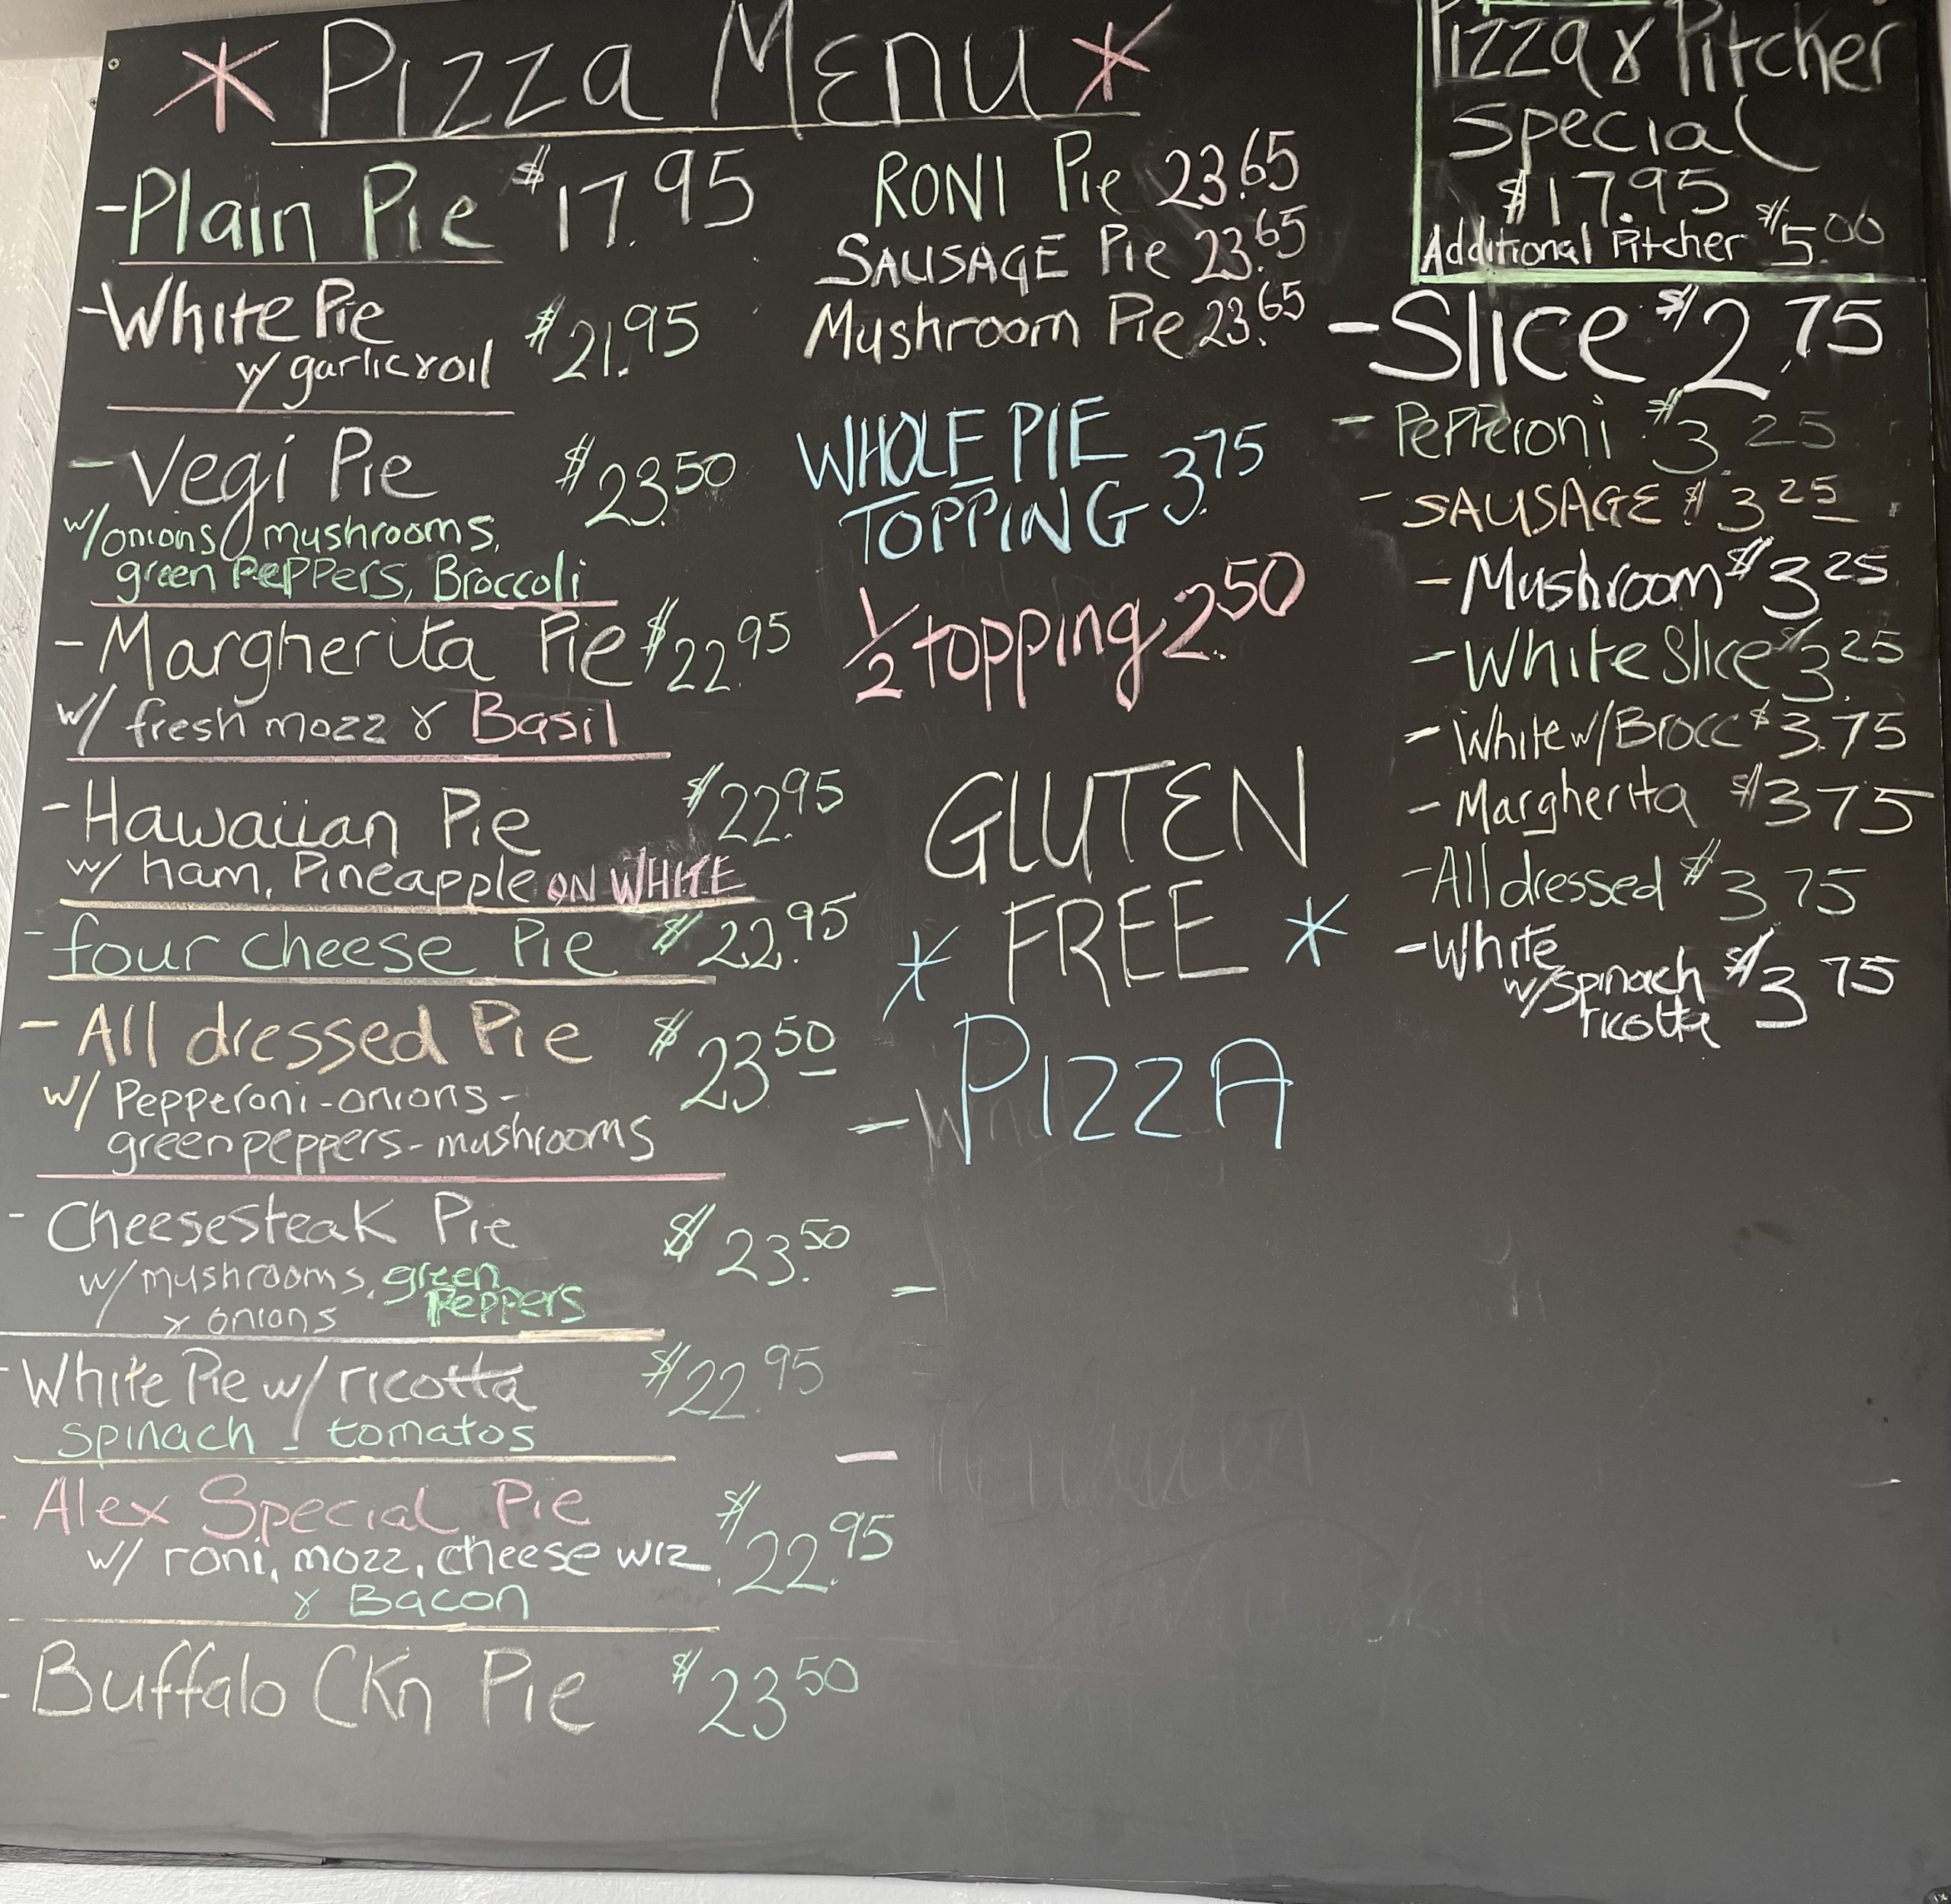 * Pizza Menu *
- Plain Pie $17.95
- White Pie $21.95
w/ garlic & oil
- Vegi Pie $23.50
w/onions, mushrooms,
green Peppers, Broccoli
- Margherita Pie $22.95
w/ fresh mozz & Basil
- Hawaiian Pie $22.95
w/ ham, Pineapple ON WHITE
- four cheese Pie $22.95
- All dressed Pie $23.50
w/ Pepperoni - onions -
green peppers - mushrooms
- Cheesesteak Pie $23.50
w/mushrooms, green Peppers
& onions
- White Pie w/ ricotta $22.95
spinach - tomatos
- Alex Special Pie $22.95
w/ roni, mozz, cheese wiz
& Bacon
- Buffalo Ckn Pie $23.50
RONI Pie 23.65
SAUSAGE Pie 23.65
Mushroom Pie 23.65
WHOLE PIE
TOPPING 3.75
1/2 topping 2.50
GLUTEN
* FREE *
PIZZA
Pizza & Pitcher
Special
$17.95
Additional Pitcher $5.00
- Slice $2.75
- Pepperoni $3.25
- SAUSAGE $3.25
- Mushroom $3.25
- White Slice $3.25
- White w/Brocc $3.75
- Margherita $3.75
- All dressed $3.75
- White
w/spinach $3.75
ricotta